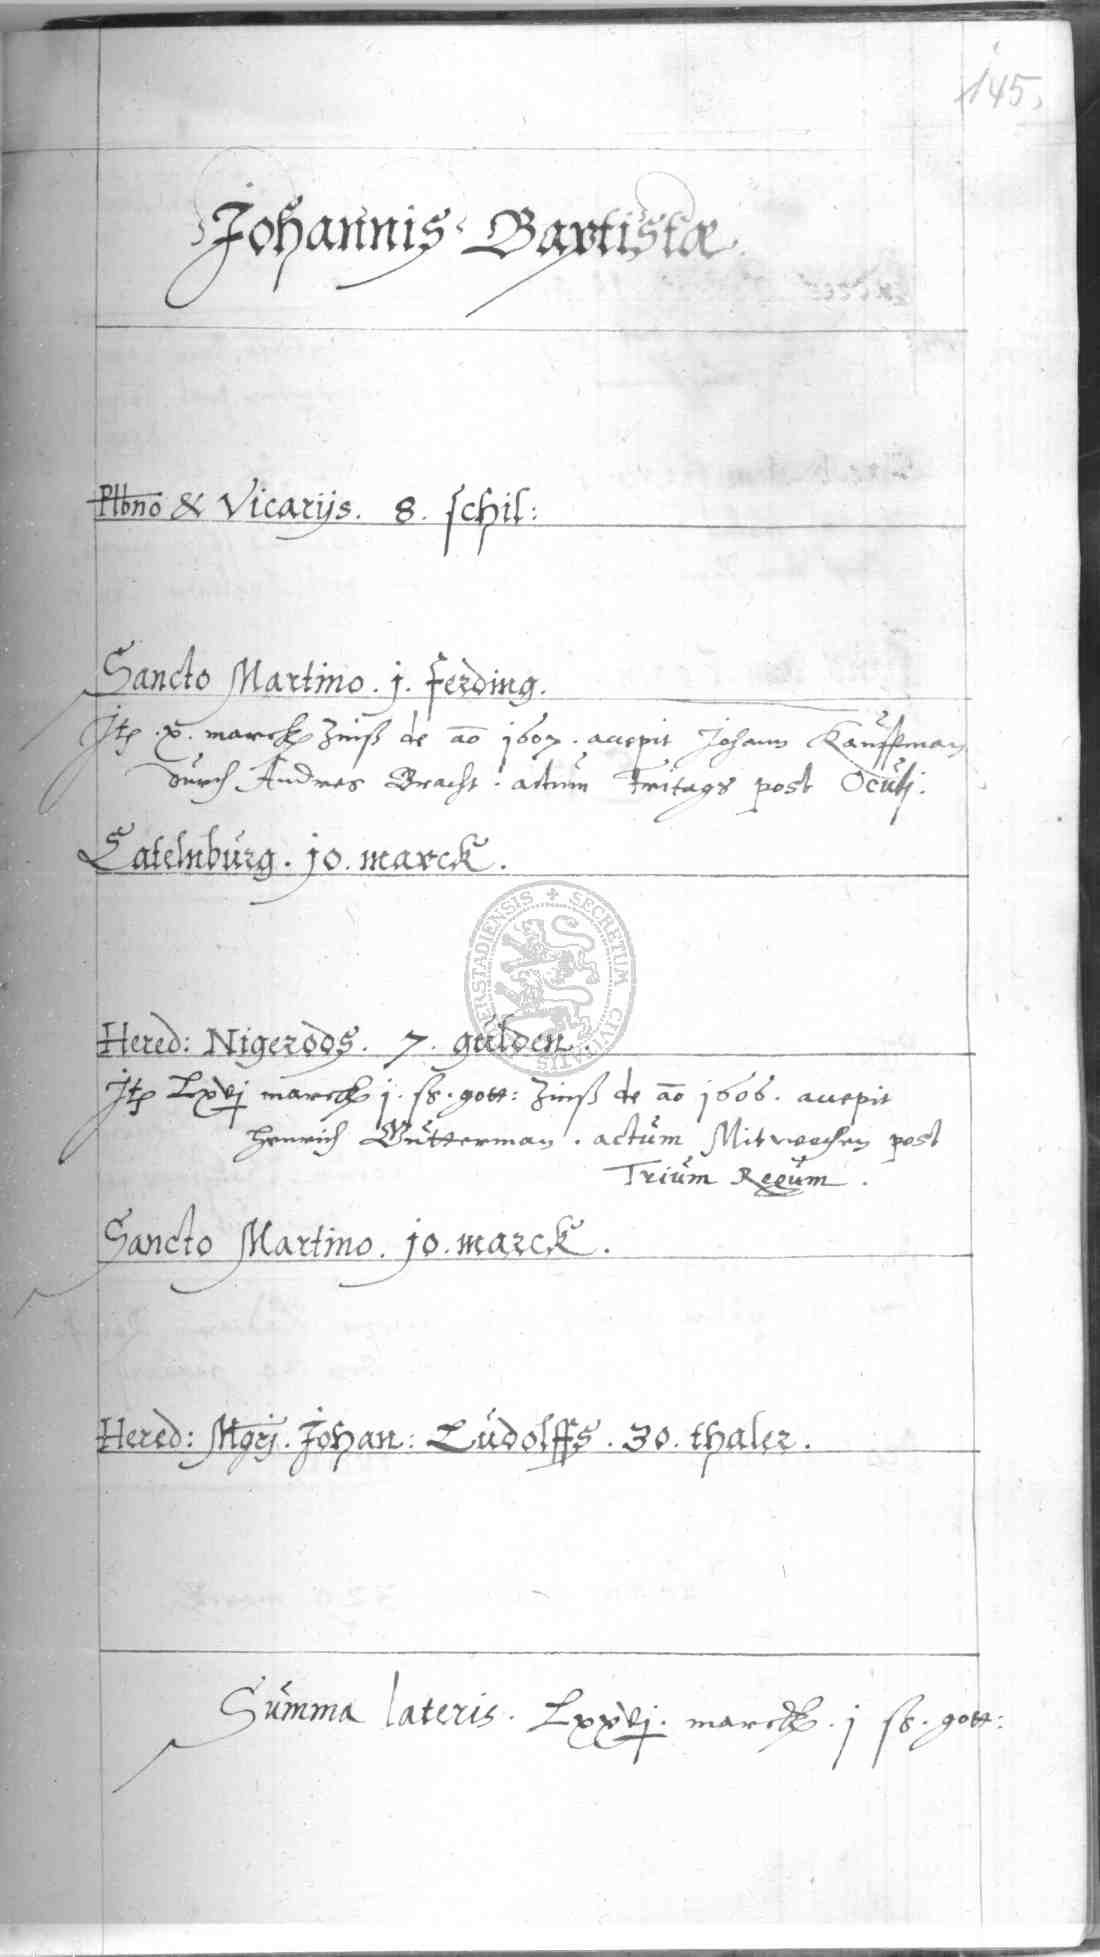 145.
Johannis Baptistæ.
Plbno & Vicarijs. 8. schil:
Sancto Martino. j. ferding.
Jtp .x. marck Zinß de ao 1607. accepit Johann Kauffman
durch Andres Bracht. actum Fritags post Oculj.
Catelnburg. 10. marck.
SECRETUM CIVITATIS HALBERSTADIENSIS
Hered: Nigerods. 7. gulden.
Jtp Lxvj marck j. ß. gott: Zinß de ao 1606. accepit
Henrich Butterman. actum Mitwochen post
Trium Regum.
Sancto Martino. 10. marck.
Hered: Mgrj. Johan: Ludolffs. 30. thaler.
Summa lateris. Lxxvj. marck. j ß. gott: